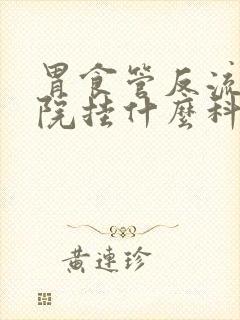 胃食管反流
院挂什麼科
黄連珍